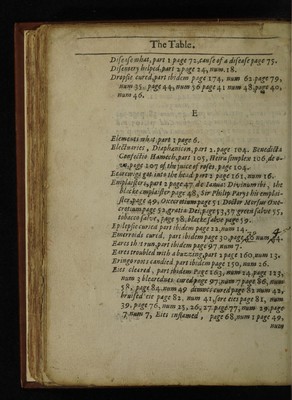 The Table.
Disease what, part 1 page 72, cause of a disease page 75.
Discovery helped, part 2 page 24, num. 18.
Dropsie cured, part ibidem page 174, num 62 page 79,
num 35, page 44, num 36 page 41 num 48, page 40,
num 46.
E
Elements what part 1 page 6.
Electuaries, Diaphanicon, part 2, page 104. Benedicta
Confectio Hamech, part 105, Heira simplex 106, de o-
page 107 of the juice of roses, page 104.
Earewigs got into the head part 2 page 161, num 16.
Emplasters, part 2 page 47, de Ianua: Divinum ibe, the
blacke emplaister page 48, Sir Philip Parys his emplai-
ster, page 49, Oxecroceum page 51 Doctor Morsus Oxe-
croceum page 52, gratia Dei, page 53, 57 green salve 55,
tobacco salve, page 58, blacke salve page 59.
Epilepsie cured part ibidem page 12, num 14.
Emeroids cured, part ibidem page 30, page num 4.
Eares that run, part ibidem page 97, num 7.
Eares troubled with a buzzing, part 2 page 160, num 13.
Eringoroots candied, part ibidem page 150, num 26.
Eits cleared, part ibidem Page 263, num 14, page 123,
num 3 bleareduess cured page 97, num 7 page 86, num
58, page 84, num 49 dimnes cured page 82 num 42,
bruised eie page 82, num 41, sore eies page 81, num
39, page 76, num 25, 26, 27, page 77, num 29, page
7 num 7, Eits inflamed, page 68, num 1 page 49,
num